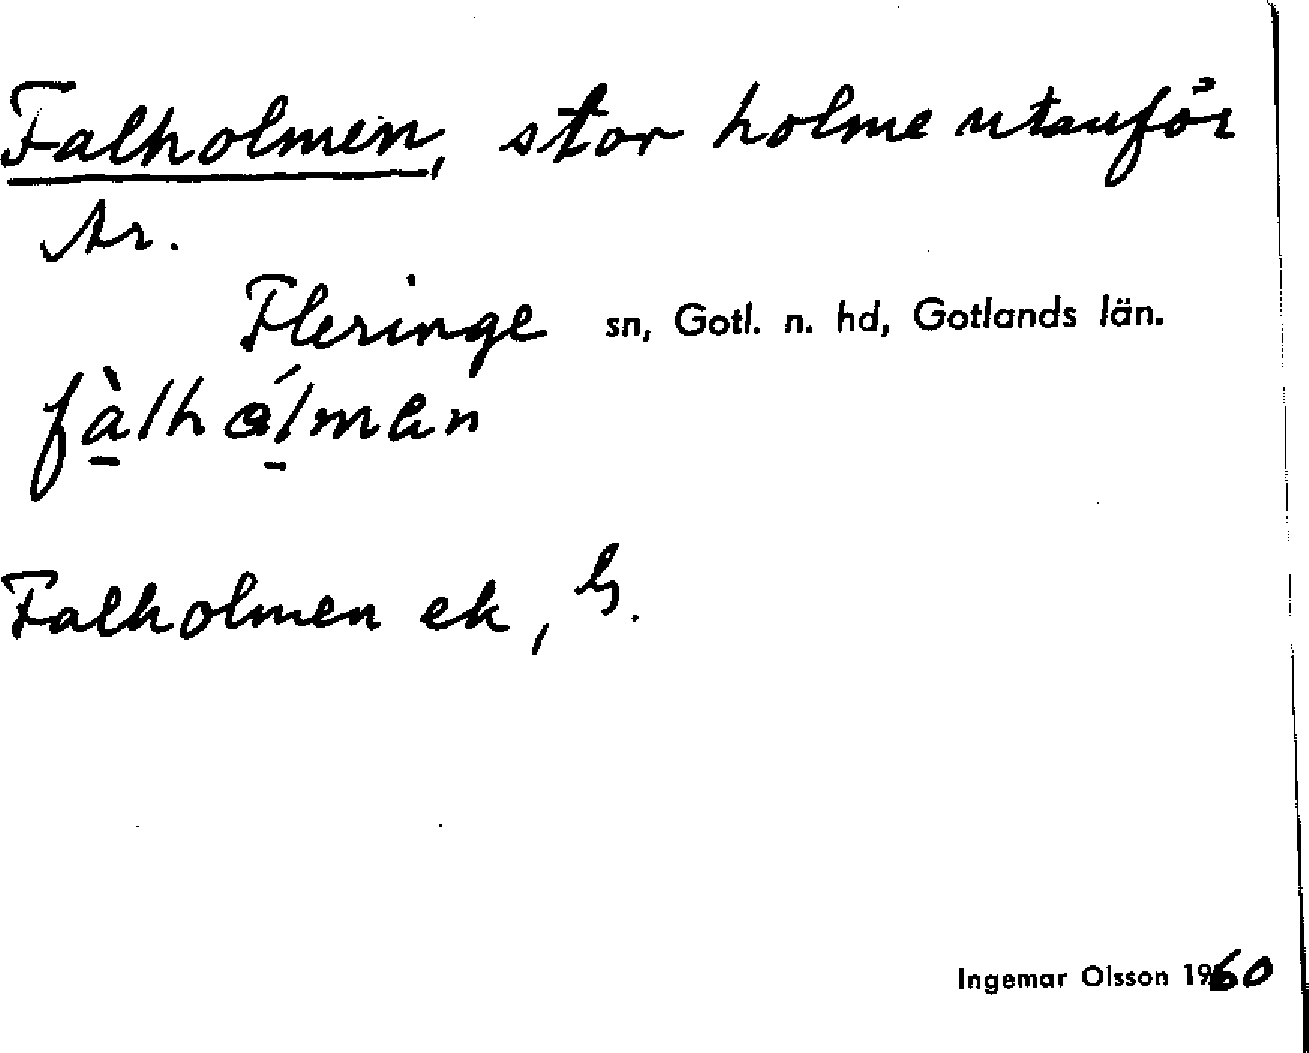 Falholmen, stor holme utanför
Ar.
Fleringe sn, Gotl. n. hd, Gotlands län.
fàlhólman
Falholmen ek,
Ingemar Olsson 1960